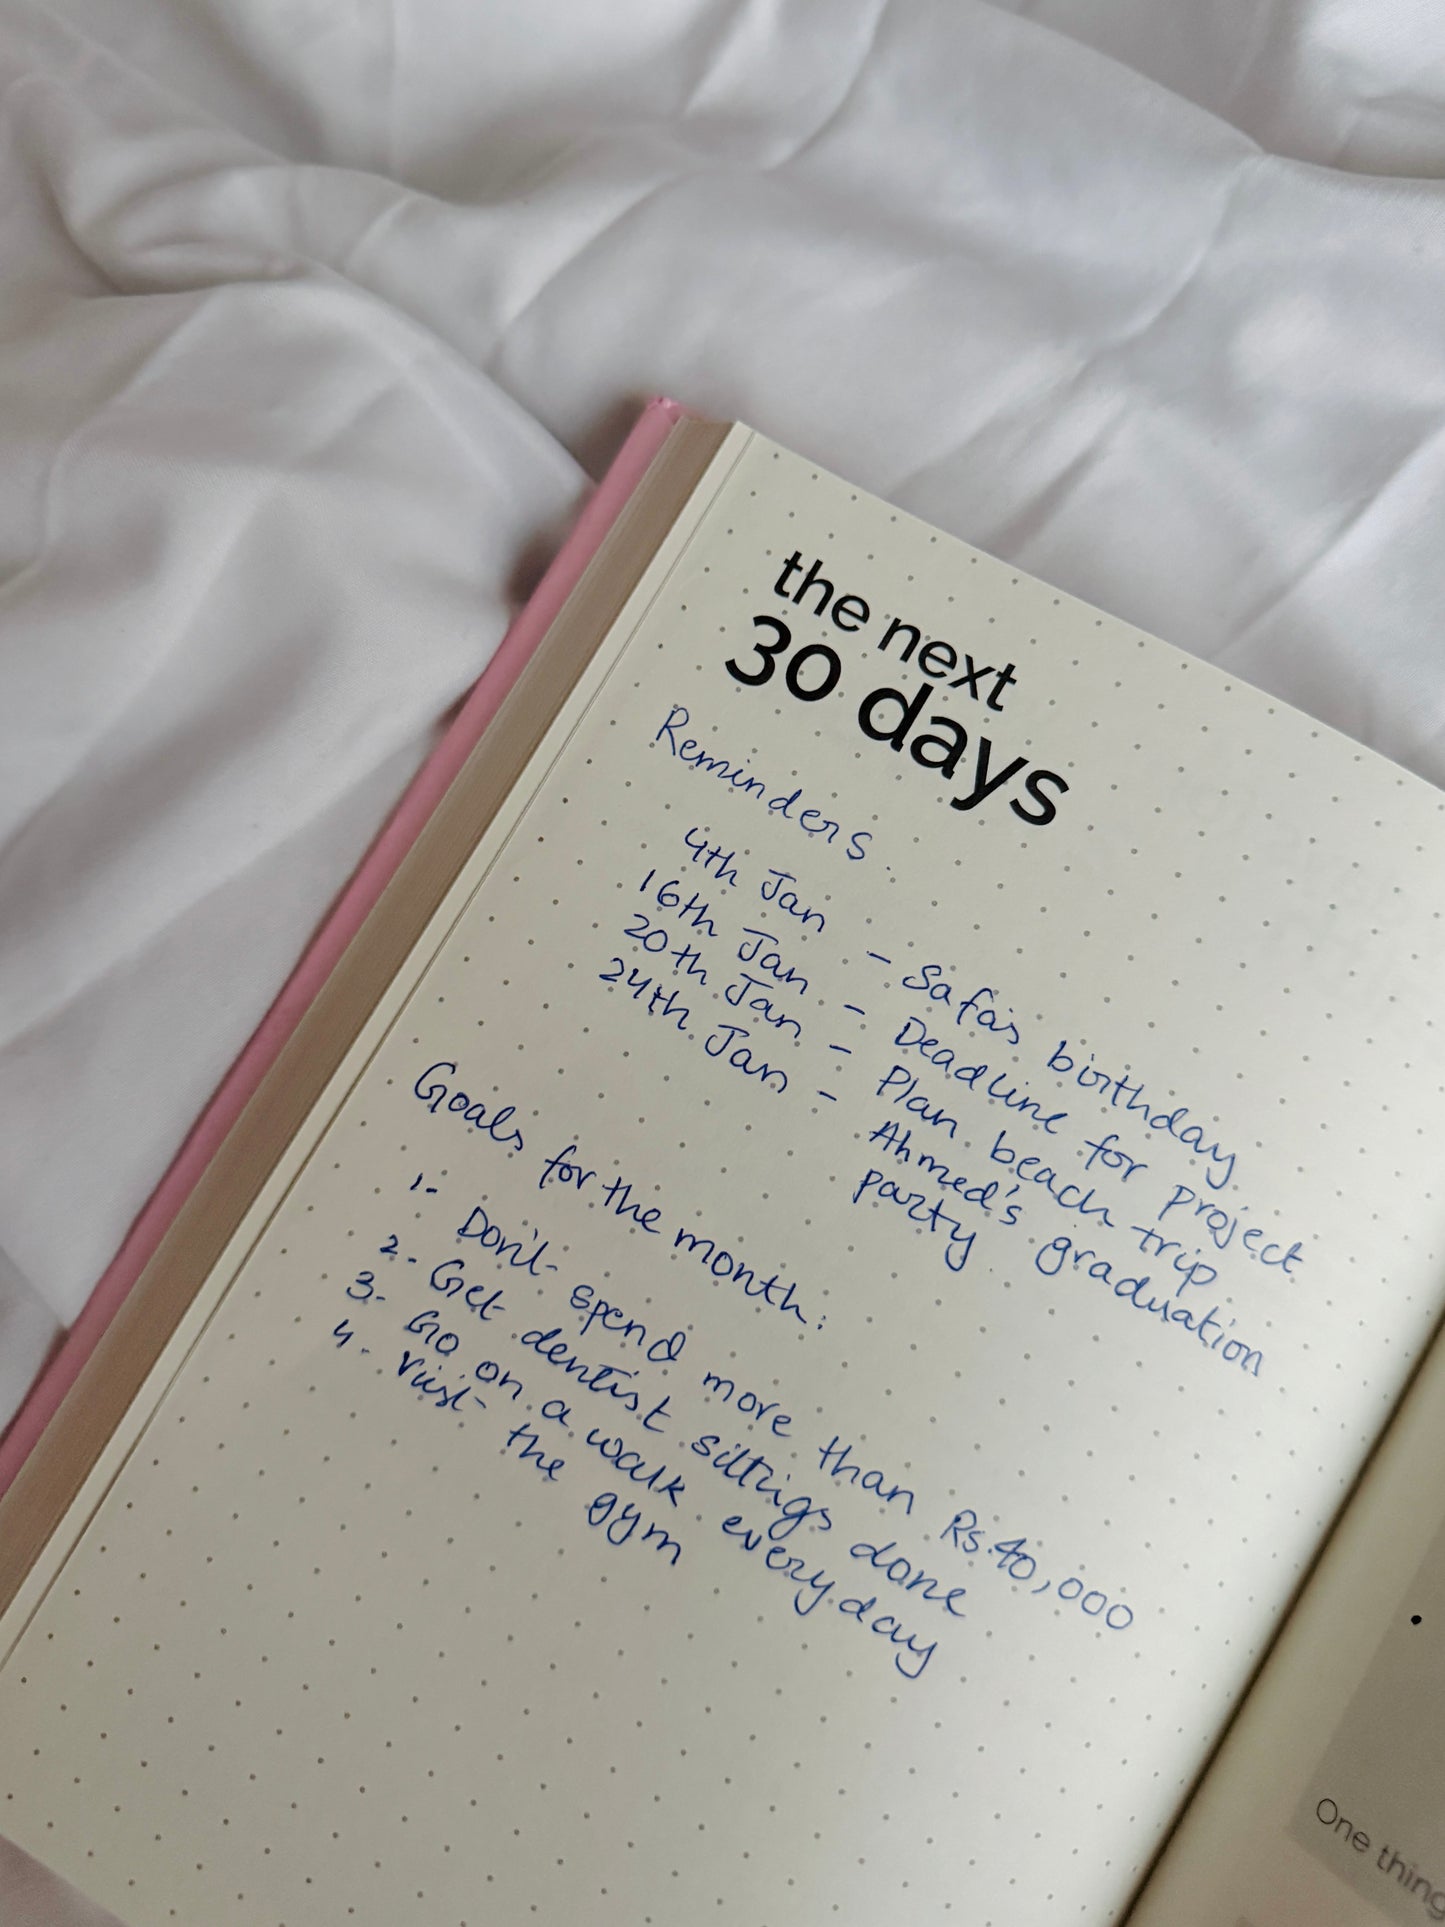 the next
30 days
Reminders
4th Jan - Safa's birthday
16th Jan - Deadline for project
20th Jan - Plan beach trip
24th Jan - Ahmed's graduation
party
Goals for the month:
1- Don't spend more than Rs.40,000
2- Get dentist sittings done
3- Go on a walk everyday
4- Visit the gym
One thing